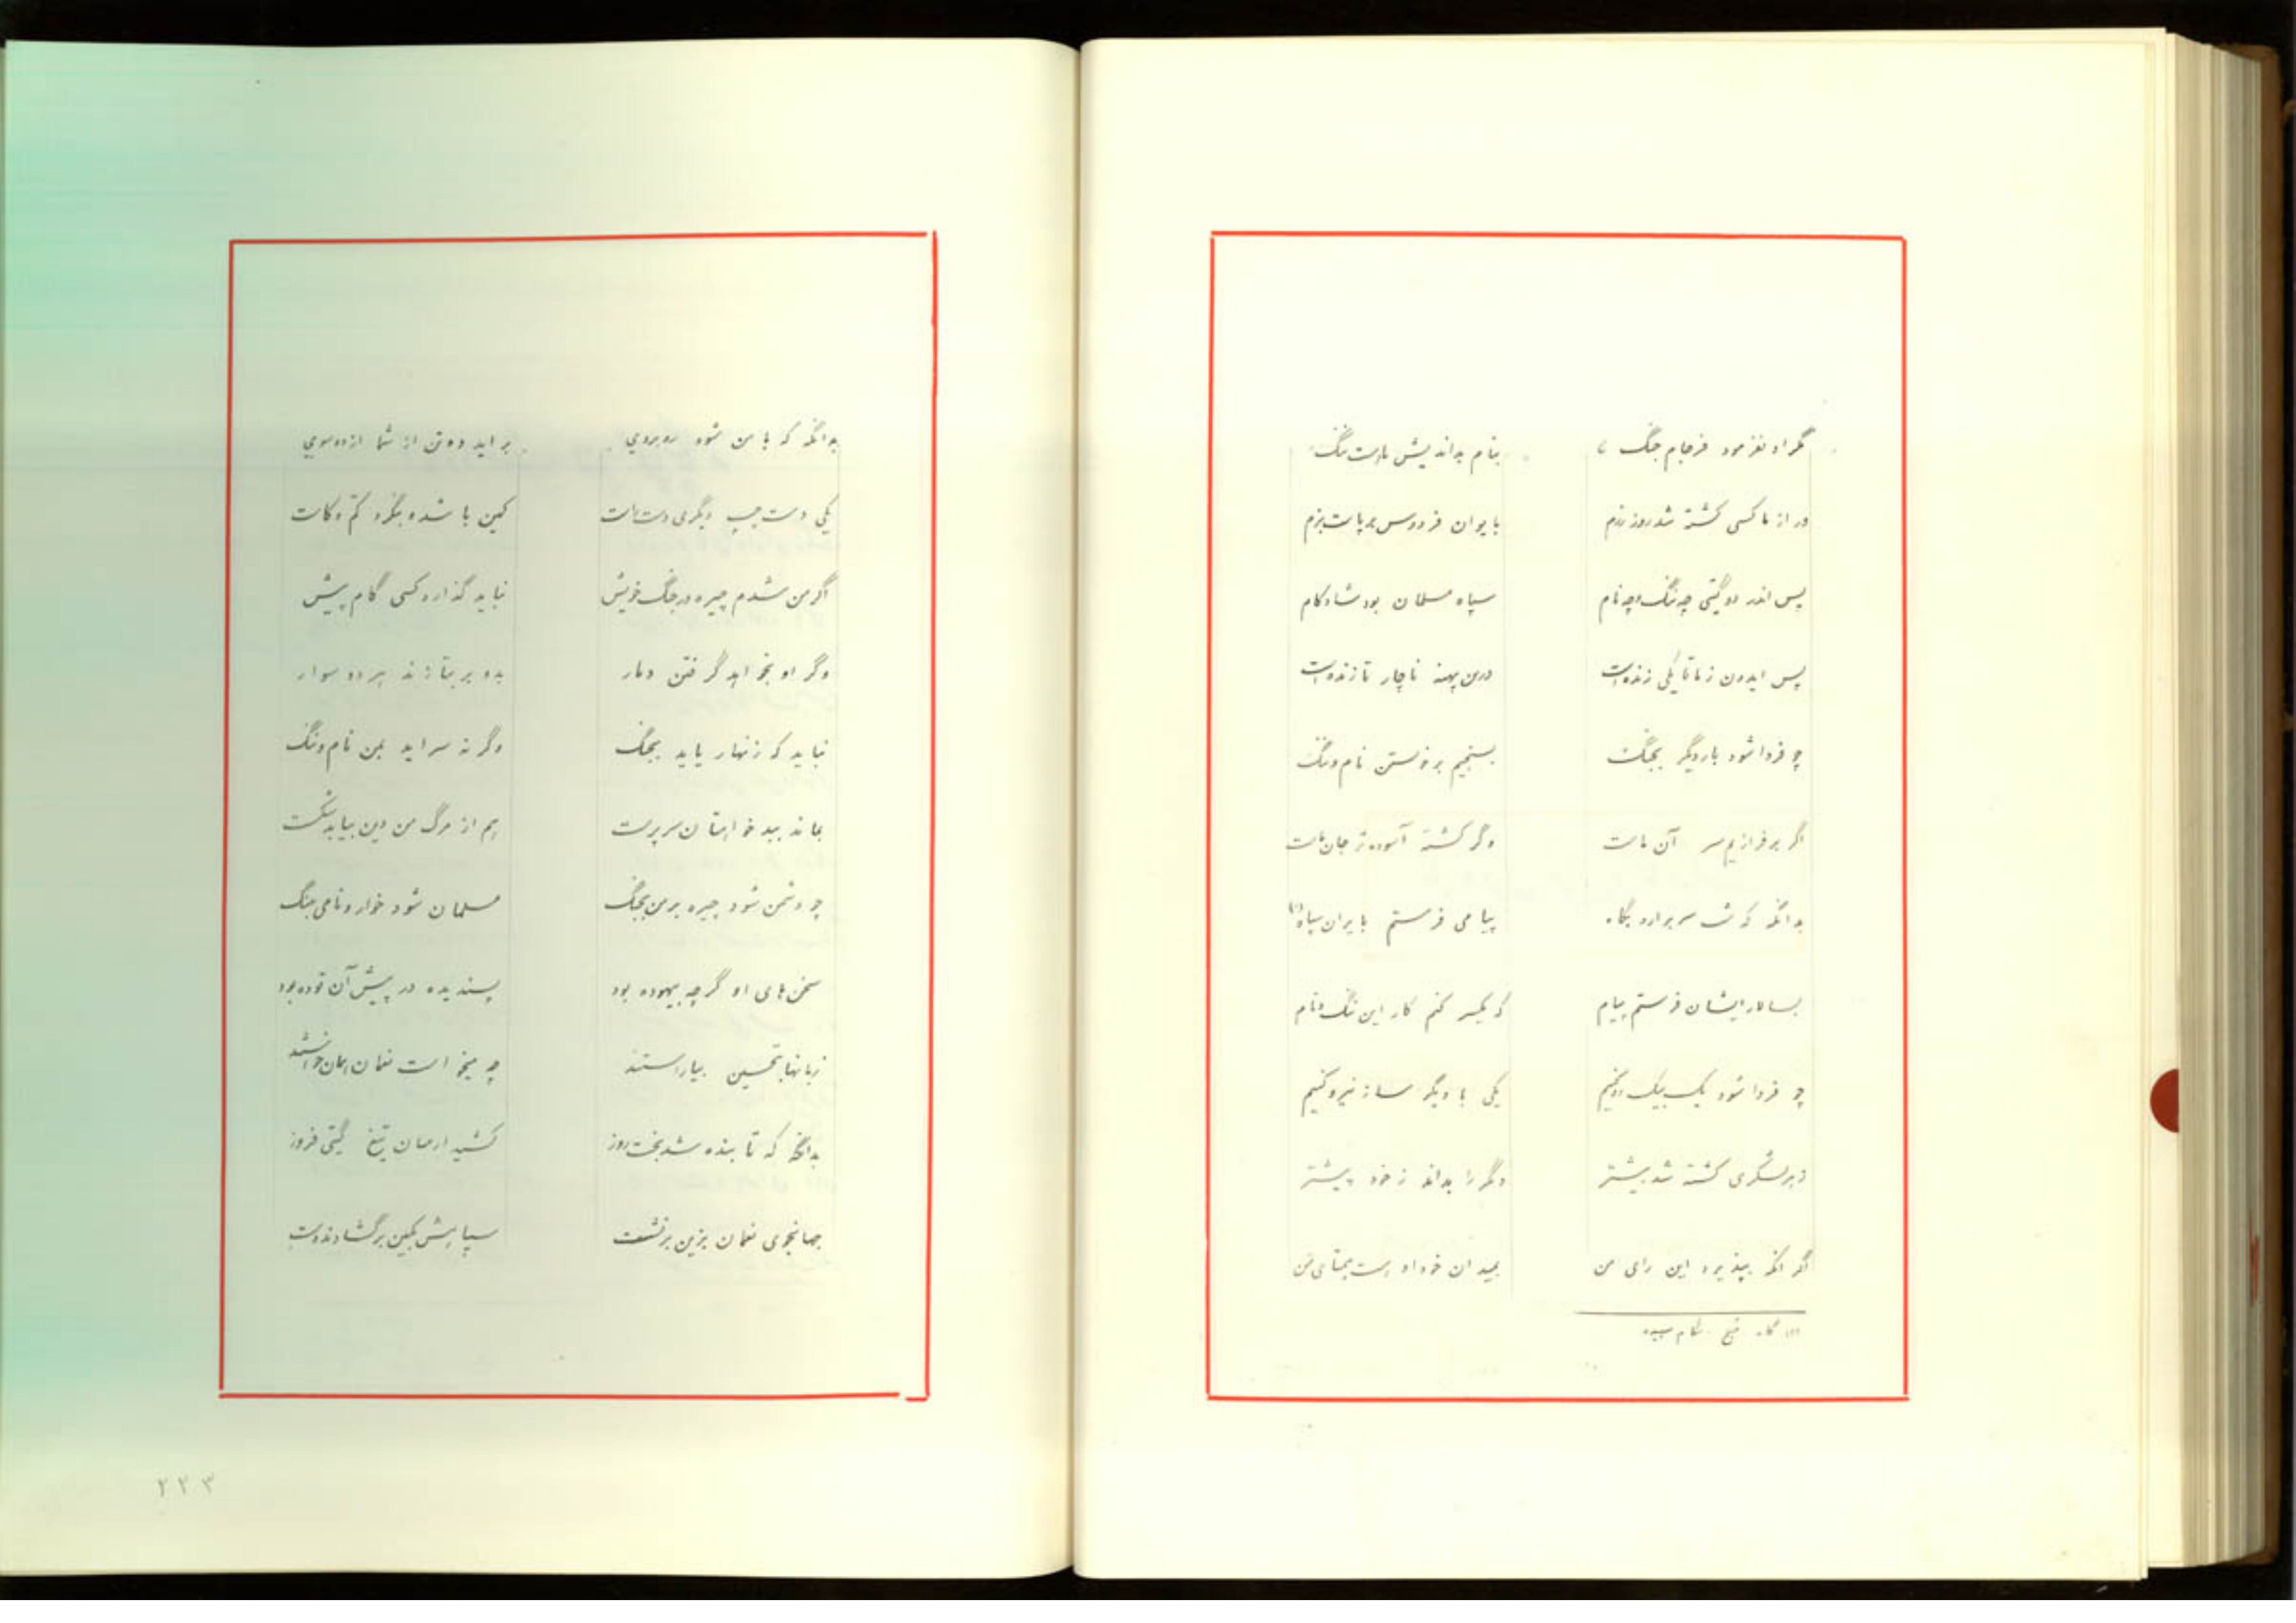 مگر او نفرمود فرجام جنگ بنام بداندیش ماست ننگ
ور از ما کسی کشته شد روز رزم بایوان فردوس برپاست بزم
پس اندر دو گیتی چه ننگ و چه نام سپاه مسلمان بود شادکام
پس ایدون ز ما تا یکی زنده است درین پهنه ناچار تازنده است
چو فردا شود بار دیگر بجنگ بسنجیم برخویشتن نام و ننگ
اگر برفرازیم سر آن ماست وگر کشته آسوده‌تر جان ماست
بدانگه که شب سر برآرد بگاه پیامی فرستم بایران سپاه (۱)
بسالار ایشان فرستم پیام که یکسر کنم کار این ننگ و نام
چو فردا شود یک بیک رو کنیم یکی با دیگر ساز نیرو کنیم
ز هر لشکری کشته شد بیشتر دگر را بداند ز خود پیشتر
اگر آنکه بپذیرد این رای من بمیدان خود او است همتای من
(۱) گاه صبح هنگام سپیده
بدانگه که با من شود روبروی برآید دو تن از شما از دو سوی
یکی دست چپ دیگری دست راست کمین باشد و بنگرد کم و کاست
اگر من شدم چیره در جنگ خویش نباید گذارد کسی گام پیش
وگر او بخواهد گرفتن دمار بدو بر بتازند هر دو سوار
نباید که زنهار یابد بجنگ وگرنه سرآید بمن نام و ننگ
بماند سپه خواهتان سرپرست هم از مرگ من دین بیابد شکست
چو دشمن شود چیره بر من بجنگ مسلمان شود خوار و نامی بننگ
سخن‌های او گرچه بیهوده بود پسندیده در پیش آن توده بود
زبانها بتحسین بیاراستند چه میخواست نعمان همان خواستند
بدانگه که تابنده شد بخت روز کشید آسمان تیغ گیتی فروز
جهانجوی نعمان بزین برنشست سپاهش بکین برگشادند دست
۲۲۳